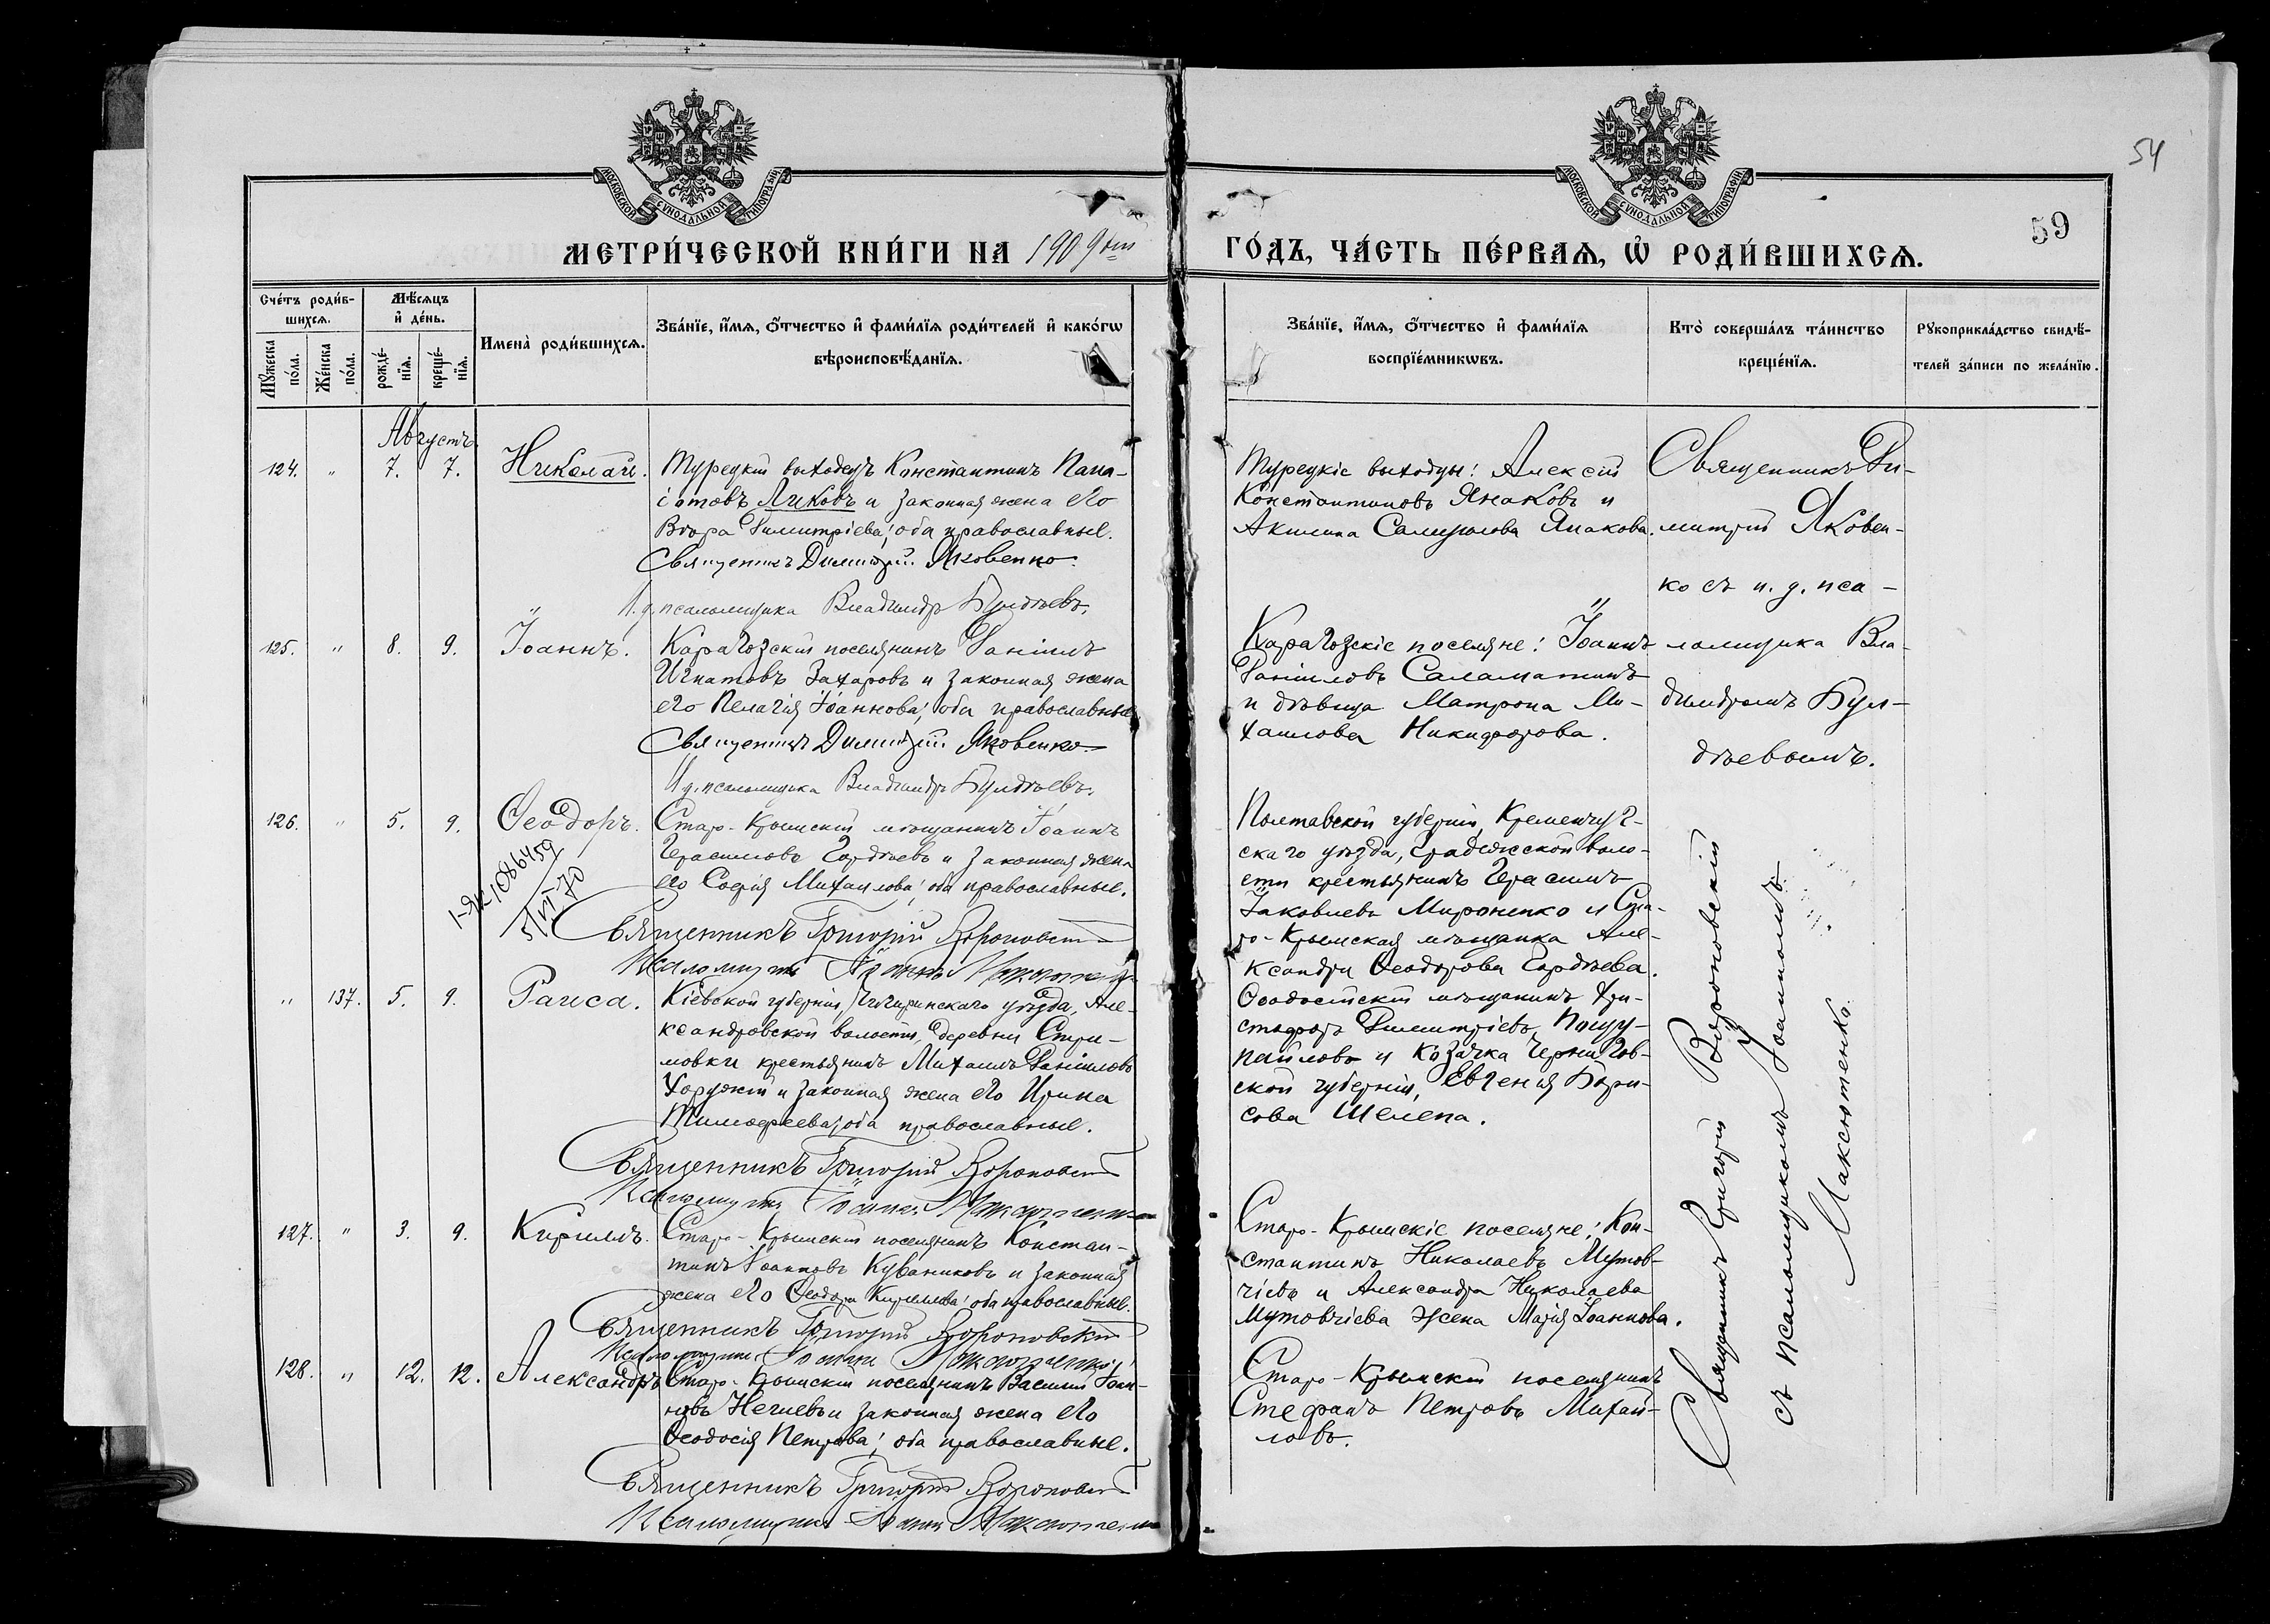 54
59
МОСКОВСКОЙ СѴНОДАЛЬНОЙ ТИПОГРАФІИ
МОСКОВСКОЙ СѴНОДАЛЬНОЙ ТИПОГРАФІИ
МЕТРИ́ЧЕСКОЙ КНИ́ГИ НА 1909 ГО́ДЪ, ЧА́СТЬ ПЕ́РВАѦ, Ѡ҆ РОДИ́ВШИХСѦ.
Сче́тъ роди́в-
шихсѧ.
Мꙋ́жеска
по́ла.
Же́нска
по́ла.
Мѣ́сѧцъ
и҆ де́нь.
рожде́-
нїѧ.
креще́-
нїѧ.
Имена̀ роди́вшихсѧ.
Зва́нїе, и҆́мѧ, ѻ҆́тчество и҆ фами́лїѧ роди́телей и҆ како́гѡ
вѣроисповѣ́данїѧ.
Зва́нїе, и҆́мѧ, ѻ҆́тчество и҆ фами́лїѧ
воспрїе́мникѡвъ.
Кто̀ соверша́лъ та́инство
креще́нїѧ.
Рꙋкоприкла́дство свидѣ́-
телей за́писи по жела́нїю.
Августъ
124. " 7. 7. Николай.
Турецкій выходецъ Константинъ Пана-
іотовъ Ликовъ и законная жена его
Вѣра Димитріева; оба православные.
Священникъ Димитрій Яковенко.
И.д. псаломщика Владиміръ Булдѣевъ.
Турецкіе выходцы: Алексѣй
Константиновъ Янаковъ и
Акилина Янакова.
Священникъ Ди-
митрій Яковен-
ко съ и. д. пса-
ломщика Вла-
диміромъ Бул-
дѣевымъ.
125. " 8. 9. Іоаннъ.
Карагозскій поселянинъ Даніилъ
Игнатовъ Захаровъ и законная жена
его Пелагія Іоаннова; оба православные
Священникъ Димитрій Яковенко
И.д. псаломщика Владиміръ Булдѣевъ.
Карагозскіе поселяне: Іоаннъ
Даніиловъ Саламатинъ
и дѣвица Матрона Ми-
хаилова Никифорова.
126. " 5. 9. Ѳеодоръ.
1-ЯК 1086459
5/VI-70
Старо-Крымскій мѣщанинъ Іоаннъ
Герасимовъ Гордѣевъ и законная жена
его Софія Михаилова; оба православные.
Священникъ Григорій Вороновскій
Псаломщикъ Іоаннъ Максютенко
Полтавской губерніи, Кременчуг-
скаго уѣзда, Градижской воло-
сти крестьянинъ Герасимъ
Іаковлевъ Мироненко и Ста-
ро-Крымская мѣщанка Але-
ксандра Ѳеодорова Гордѣева.
" 137. 5. 9. Раиса.
Кіевской губерніи, Чигиринскаго уѣзда, Але-
ксандровской волости, деревни Стри-
мовки крестьянинъ Михаилъ Даніиловъ
Хоружій и законная жена его Ирина
Тимоѳеева; оба православные.
Священникъ Григорій Вороновскій
Псаломщикъ Іоаннъ Максютенко
Ѳеодосійскій мѣщанинъ Хри-
стофоръ Димитріевъ
и козачка Чернигов-
ской губерніи, Евгенія Бори-
сова Шелепа.
127. " 3. 9. Кириллъ.
Старо-Крымскій поселянинъ Констан-
тинъ Іоанновъ Куваниковъ и законная
жена его Ѳеодора Кириллова; оба православные.
Священникъ Григорій Вороновскій
Псаломщикъ Іоаннъ Максютенко
Старо-Крымскіе поселяне: Кон-
стантинъ Николаевъ Мутов-
чіевъ и Александра Николаева
Мутовчіева жена Марія Іоаннова.
128. " 12. 12. Александръ
Старо-Крымскій поселянинъ Василій Іоан-
новъ Негиевъ и законная жена его
Ѳеодосія Петрова; оба православные.
Священникъ Григорій Вороновскій
Псаломщикъ Іоаннъ Максютенко
Старо-Крымскій поселянинъ
Стефанъ Петровъ Михай-
ловъ.
Священникъ Григорій Вороновскій
съ псаломщикомъ Іоанномъ
Максютенко.